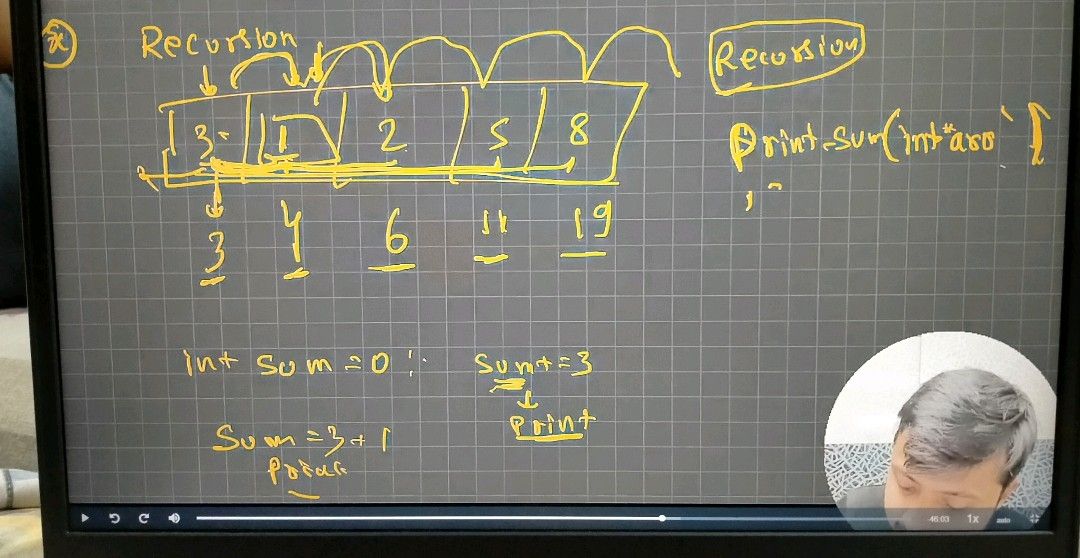 Ex
Recursion
3 1 2 5 8
3 4 6 11 19
int sum = 0;
sum += 3
print
Sum = 3 + 1
print
Recursion
print-sum(int*arr
46:03 1x auto